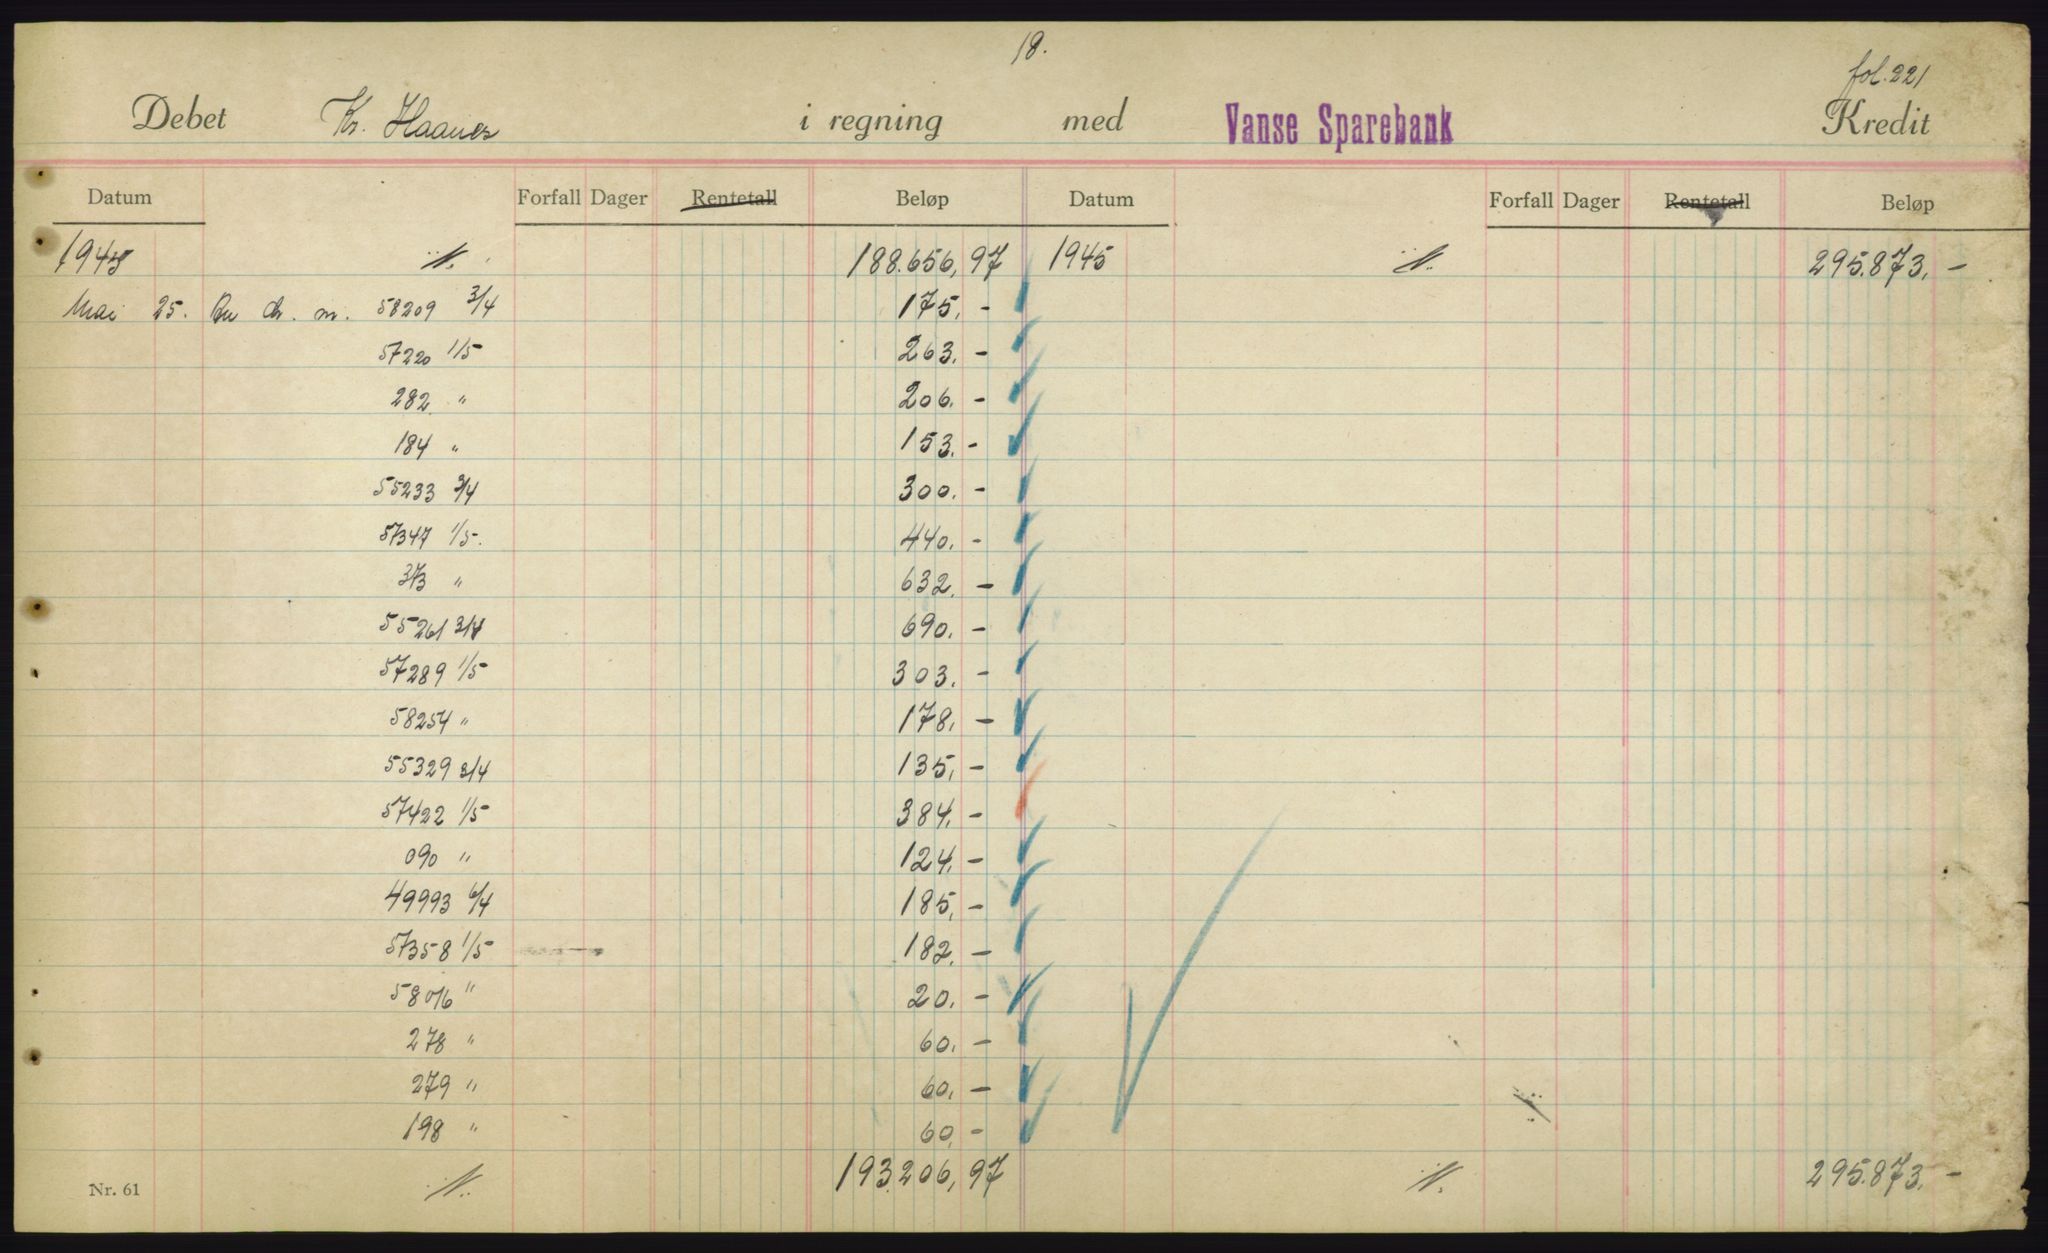 18.
fol. 221
Debet Kr. Haanes i regning med Vanse Sparebank Kredit
Datum Forfall Dager Rentetall Beløp Datum Forfall Dager Rentetall Beløp
1945 188.656,97 1945 295.873.-
Mai 25. m. 58209 3/4 175.-
57220 1/5 263.-
282 " 206.-
184 " 153.-
55233 3/4 300.-
57347 1/5. 440.-
373 " 632.-
55261 3/4 690.-
57289 1/5 303.-
58254 " 178.-
55329 3/4 135.-
57422 1/5 384.-
090 " 124.-
49993 6/4 185.-
57358 1/5 182.-
58016 " 20.-
278 " 60.-
279 " 60.-
198 " 60.-
193.206,97 295.873.-
Nr. 61